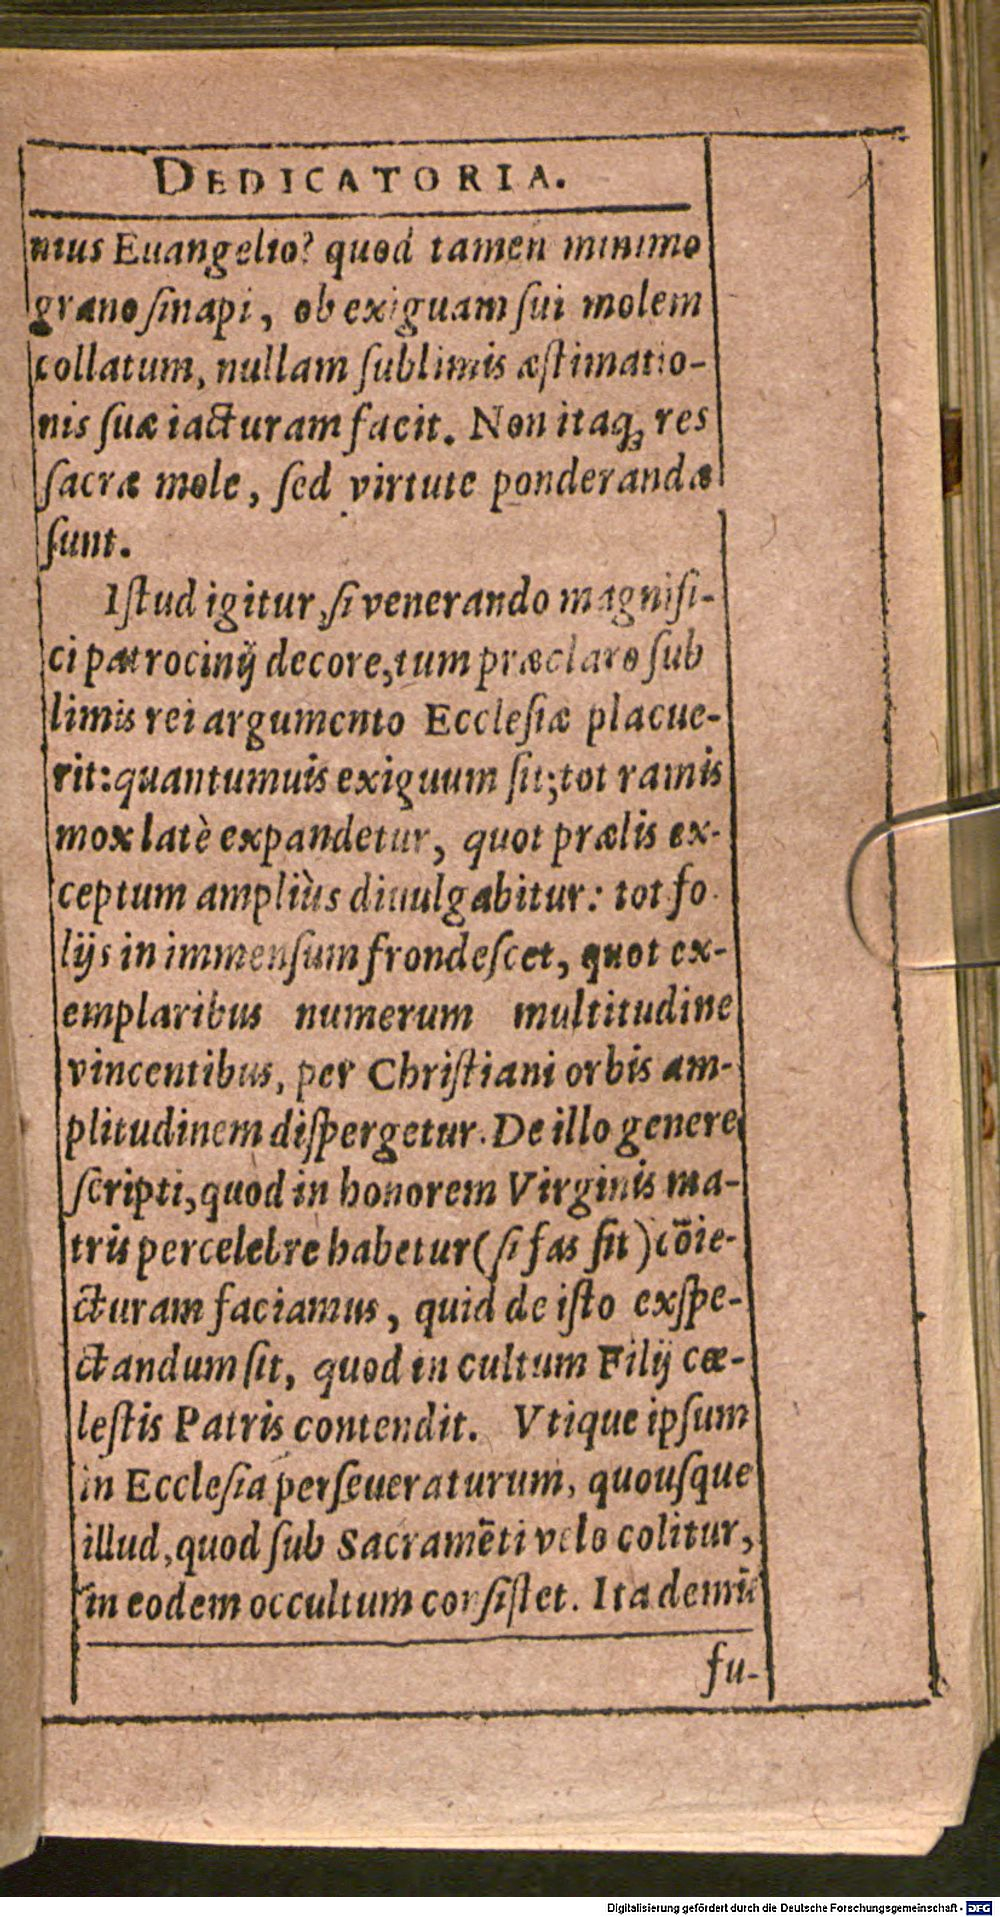 DEDICATORIA.
nius Euangelio? quod tamen minimo
grano ſinapi, ob exiguam ſui molem
collatum, nullam ſublimis æſtimatio-
nis ſuæ iacturam facit. Non itaq; res
ſacræ mole, ſed virtute ponderandæ
ſunt.
Iſtud igitur, ſi venerando magnifi-
ci patrocinij decore, tum præclaro ſub
limis rei argumento Eccleſiæ placue-
rit: quantumuis exiguum ſit; tot ramis
mox latè expandetur, quot prælis ex-
ceptum ampliùs diuulgabitur: tot fo
lijs in immenſum frondeſcet, quot ex-
emplaribus numerum multitudine
vincentibus, per Chriſtiani orbis am-
plitudinem diſpergetur. De illo genere
ſcripti, quod in honorem Virginis ma-
tris percelebre habetur (ſi fas ſit) cõie-
cturam faciamus, quid de iſto exſpe-
ctandum ſit, quod in cultum Filij cœ-
leſtis Patris contendit. Vtique ipſum
in Eccleſia perſeueraturum, quouſque
illud, quod ſub Sacramẽti velo colitur,
in eodem occultum conſiſtet. Ita demũ
fu-
Digitalisierung gefördert durch die Deutsche Forschungsgemeinschaft - DFG